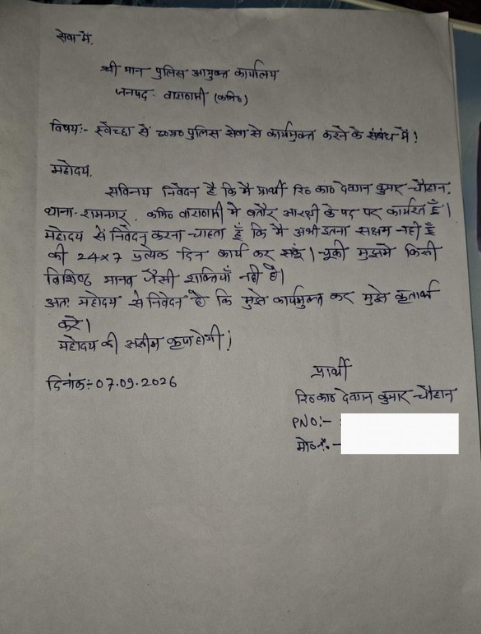 सेवा में,
श्री मान पुलिस आयुक्त कार्यालय
जनपद- वाराणसी (कमि०)
विषय:- स्वेच्छा से उ०प्र० पुलिस सेवा से कार्यमुक्त करने के संबंध में!
महोदय,
सविनय निवेदन है कि मैं प्रार्थी रि० का० देवान कुमार चौहान,
थाना- रामनगर, कमि० वाराणसी में बतौर आरक्षी के पद पर कार्यरत हूँ।
महोदय से निवेदन करना चाहता हूँ कि मैं अभी इतना सक्षम नही हूँ
की 24x7 प्रत्येक दिन कार्य कर सकूं। चूकी मुझमे किसी
विशिष्ठ मानव जैसी शक्तियाँ नही है।
अतः महोदय से निवेदन है कि मुझे कार्यमुक्त कर मुझे कृतार्थ
करे।
महोदय की असीम कृपा होगी!
दिनांक:- 07.09.2026
प्रार्थी
रि० का० कुमार चौहान
PNO:-
मो० नं०-